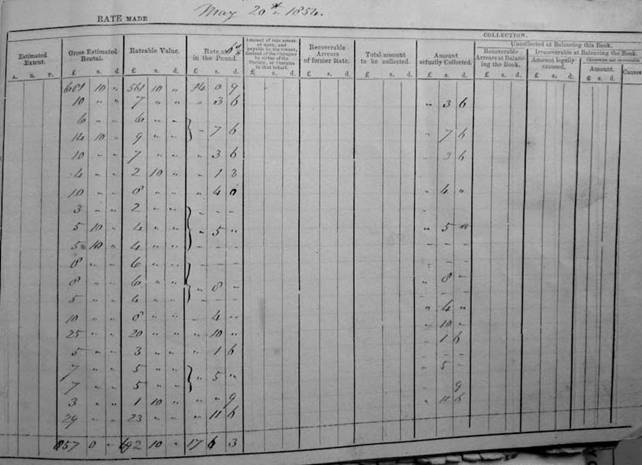 RATE MADE May 20th 1854.
COLLECTION.
Estimated Extent. Gross Estimated Rental. Rateable Value. Rate at 6d in the Pound. Recoverable Arrears of former Rate. Total amount to be collected. Amount actually Collected. Uncollected at Balancing this Book.
Recoverable Arrears at Balancing the Book. Irrecoverable at Balancing the Book.
Amount legally excused. Amount. Causes
A. R. P. £ s. d. £ s. d. £ s. d. £ s. d. £ s. d. £ s. d. £ s. d. £ s. d. £ s. d. £ s. d.
661 10 " 561 10 " 14 0 9
10 " " 7 " " " 3 6 " 3 6
6 " " 6 " "
14 10 " 9 " " } " 7 6 " 7 6
10 " " 7 " " " 3 6 " 3 6
4 " " 2 10 " " 1 3
10 " " 8 " " " 4 " 4 "
3 " " 2 " "
5 10 " 4 " " } " 5 " " 5 "
5 10 " 4 " "
8 " " 6 " "
8 " " 6 " " } " 8 " " 8 "
5 " " 4 " "
10 " " 8 " " " 4 " " 4 "
25 " " 20 " " " 10 " " 10 "
5 " " 3 " " " 1 6 " 1 6
7 " " 5 " "
7 " " 5 " " } " 5 " " 5 "
3 " " 1 10 " " " 9 9
29 " " 23 " " " 11 6 " 11 6
857 0 " 692 10 " 17 6 3